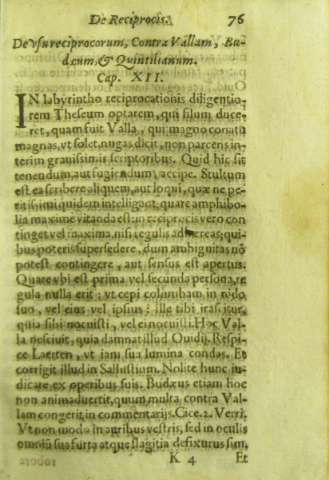 De Reciprocis. 76
De vsu reciprocorum, Contra Vallam, Bu-
dæum, & Quintilianum.
Cap. XII.
IN Labyrintho reciprocationis diligentio-
rem Theseum optarem, qui filum duce-
ret, quam fuit Valla, qui magno conatu
magnas, vt solet, nugas dicit, non parcens in-
terim grauissimis scriptoribus. Quid hic sit
tenendum, aut fugiendum, accipe. Stultum
est ea scribere aliquem, aut loqui, quæ ne pe-
ritissimi quidem intelligant, quare amphibo-
lia maxime vitanda est: in reciprocis vero con
tinget vel maxima, nisi regulis adhæreas; qui-
bus poteris supersedere, dum ambiguitas nō
potest contingere, aut sensus est apertus.
Quare vbi est prima vel secunda persona, re
gula nulla erit: vt cepi columbam in nido
suo, vel eius vel ipsius: ille tibi irascitur,
quia sibi nocuisti, vel ei nocuisti. Hoc Val-
la nesciuit, quia damnat illud Ouidij. Respi-
ce Laerten, vt iam sua lumina condas. Et
corrigit illud in Sallustium. Nolite hunc iu-
dicare ex operibus suis. Budæus etiam hoc
non animaduertit, quum multa contra Val-
lam congerit in commentarijs. Cice. 2. Verri.
Vt non modo in auribus vestris, sed in oculis
omniū sua furta atque flagitia defixurus sim.
K 4 Et